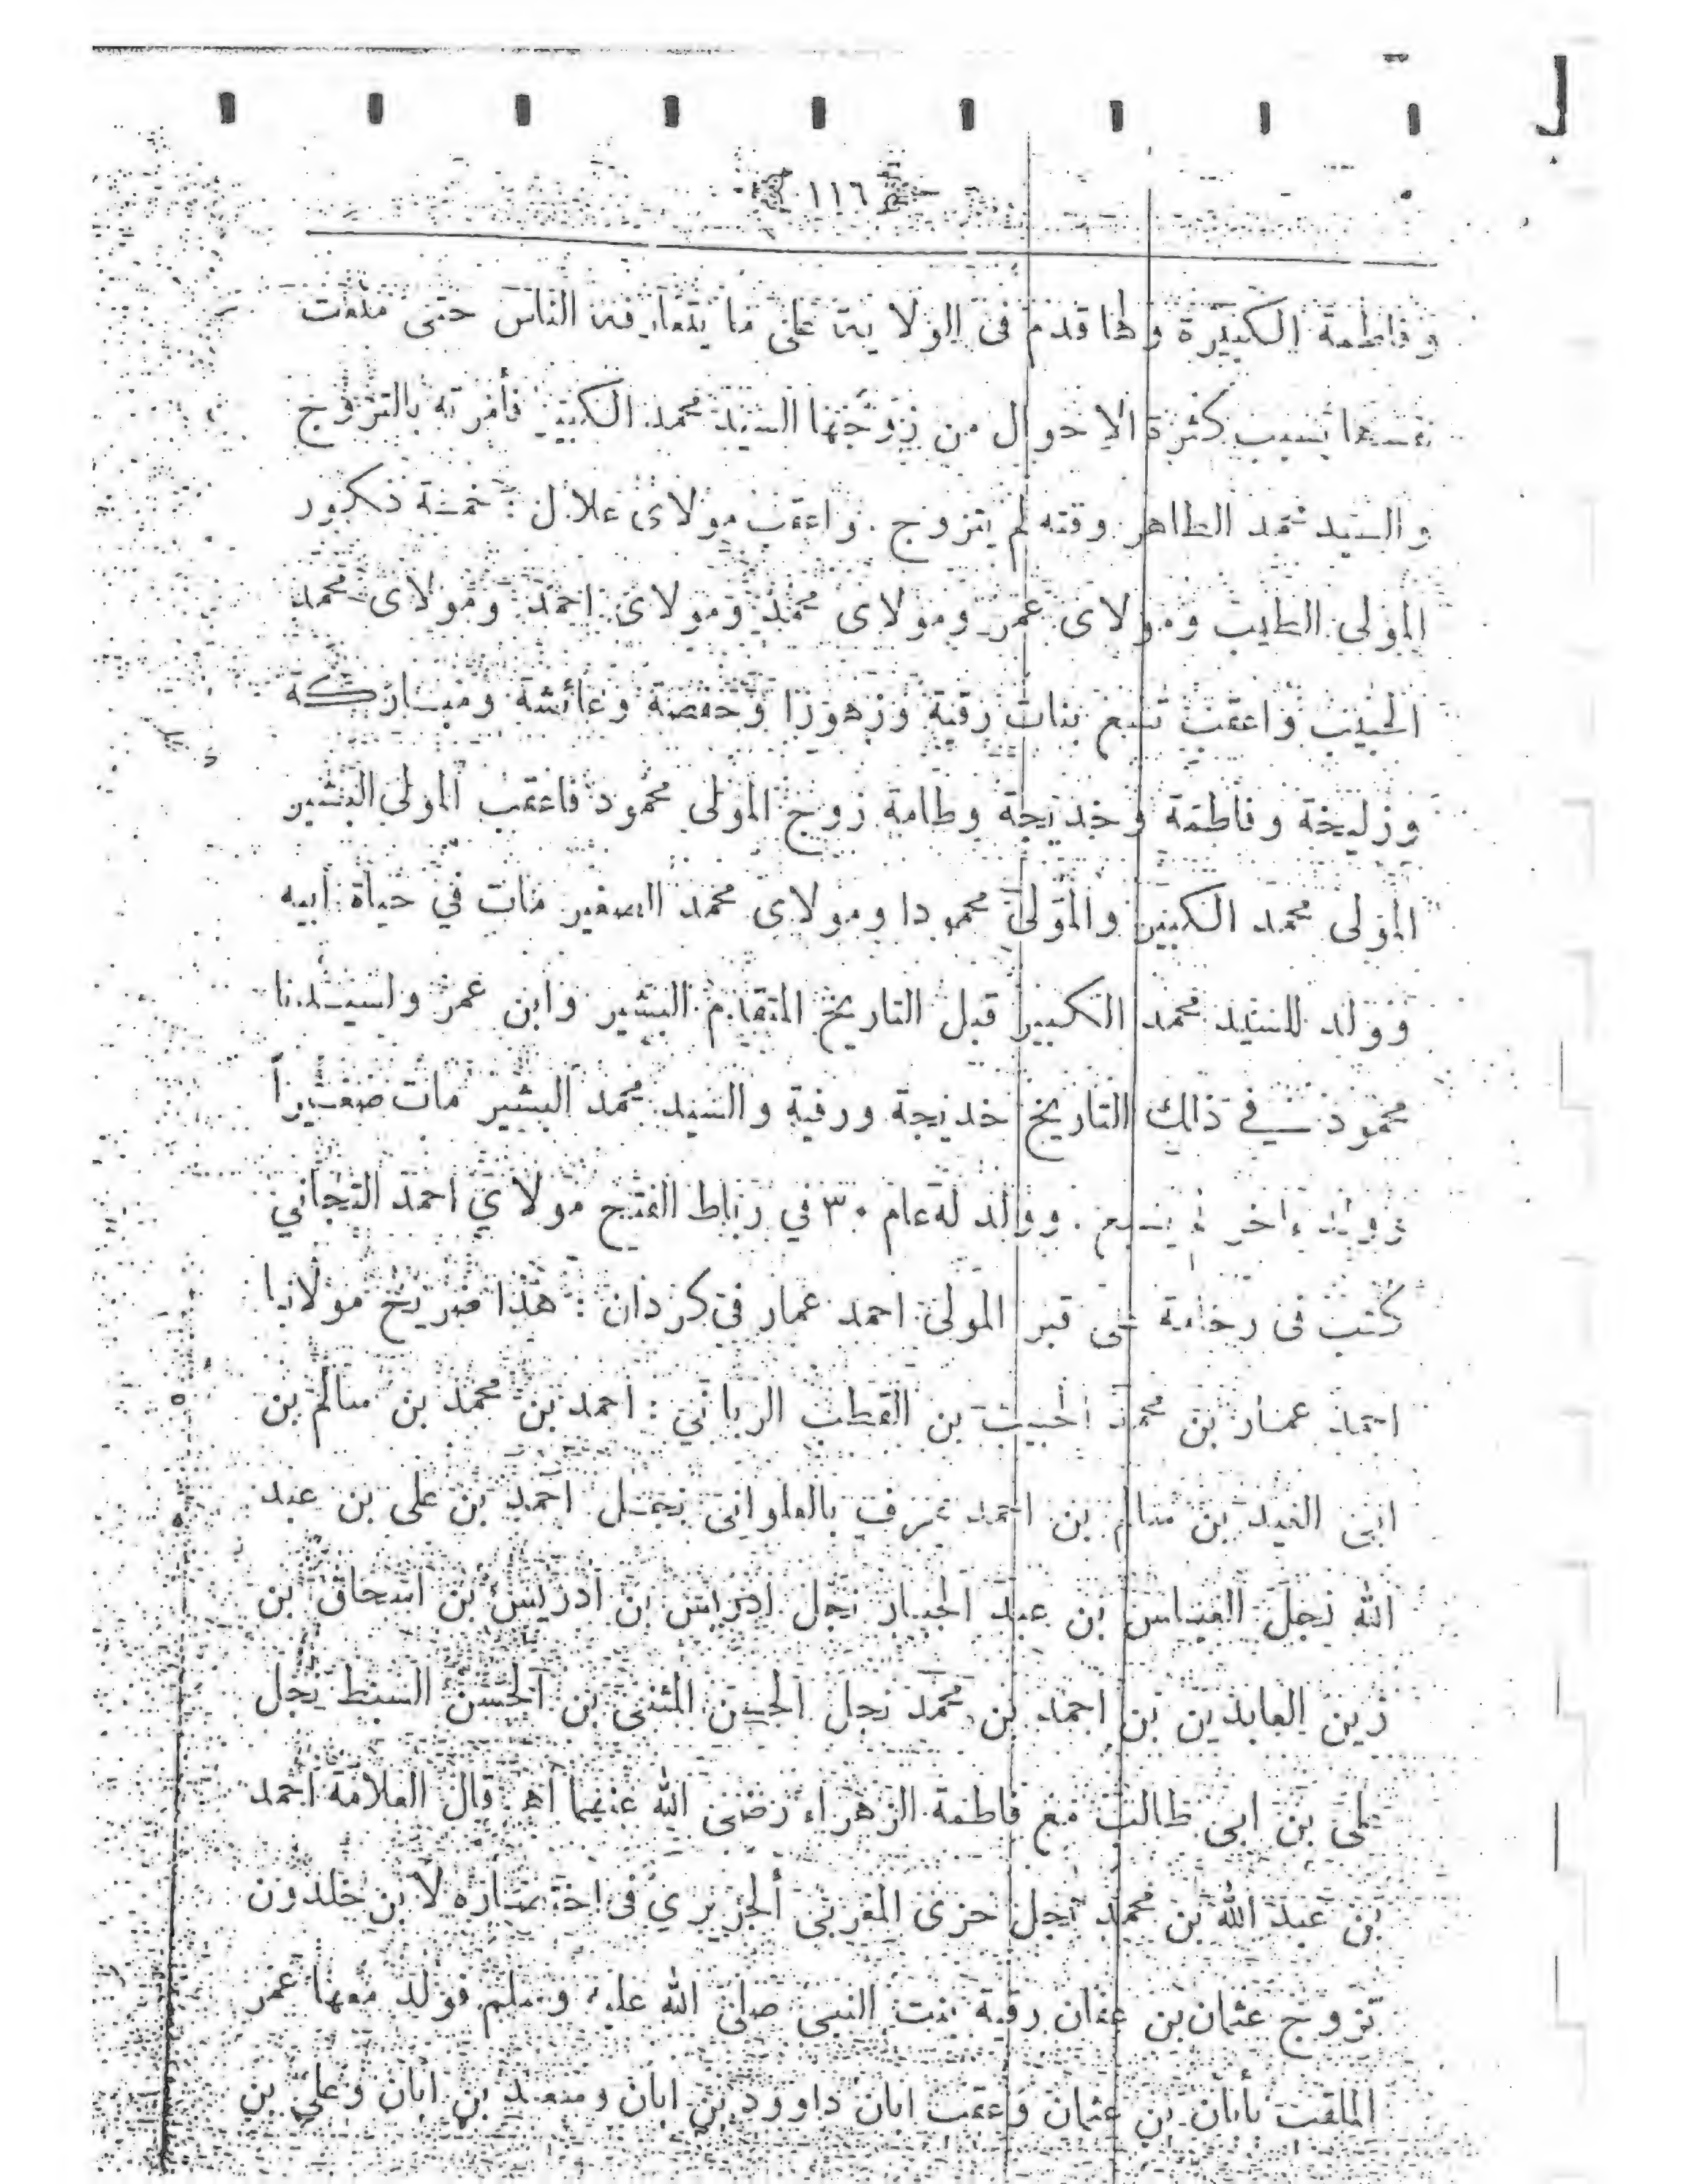 ١١٦
وفاطمة الكبيرة ولها قدم فى الولاية على ما يتعارفه الناس حتى
نفسها بسبب كثرة الاحوال من زوجها السيد محمد الكبير فأمرته بالتزوج
والسيد محمد الطاهر وقته لم يتزوج . واعقب مولاى علال : خمسة ذكور
المولى الطيب ومولاى عمر ومولاى محمد ومولاى احمد ومولاى محمد
الحبيب واعقب تسع بنات رقية وزهورا وحفصة وعائشة ومباركة
وزليخة وفاطمة وخديجة وطامة زوج المولى محمود فاعقب المولى البشير
المولى محمد الكبير والمولى محمودا ومولاى محمد الصغير مات في حياة أبيه
وولد للسيد محمد الكبير قبل التاريخ المتقدم البشير وابن عمر ولسيدنا
محمود في ذالك التاريخ خديجة ورقية والسيد محمد البشير مات صغيراً
وولد ءاخر لم . وولد له عام ٣٠ في رباط الفتح مولاي احمد التجاني
كتب فى رخامة على قبر المولى احمد عمار فى كردان : هذا ضريح مولانا
احمد عمار بن محمد الحبيب بن القطب الربانى : احمد بن محمد بن سالم بن
ابى العيد بن سالم بن احمد عرف بالعلوانى نجل احمد بن على بن عبد
الله نجل العباس بن عبد الجبار نجل ادريس بن ادريس بن اسحاق بن
زين العابدين بن احمد بن محمد نجل الحسن المثنى بن الحسن السبط نجل
على بن ابى طالب مع فاطمة الزهراء رضى الله عنهما اه قال العلامة احمد
بن عبد الله بن محمد نجل حزى المغربى الجزيري فى اختصاره لابن خلدون
تزوج عثمان بن عفان رقية بنت النبى صلى الله عليه وسلم فولد معها عمر
الملقب بأبان بن عثمان وعقب ابان داوود بن ابان وسعد بن ابان وعلى بن